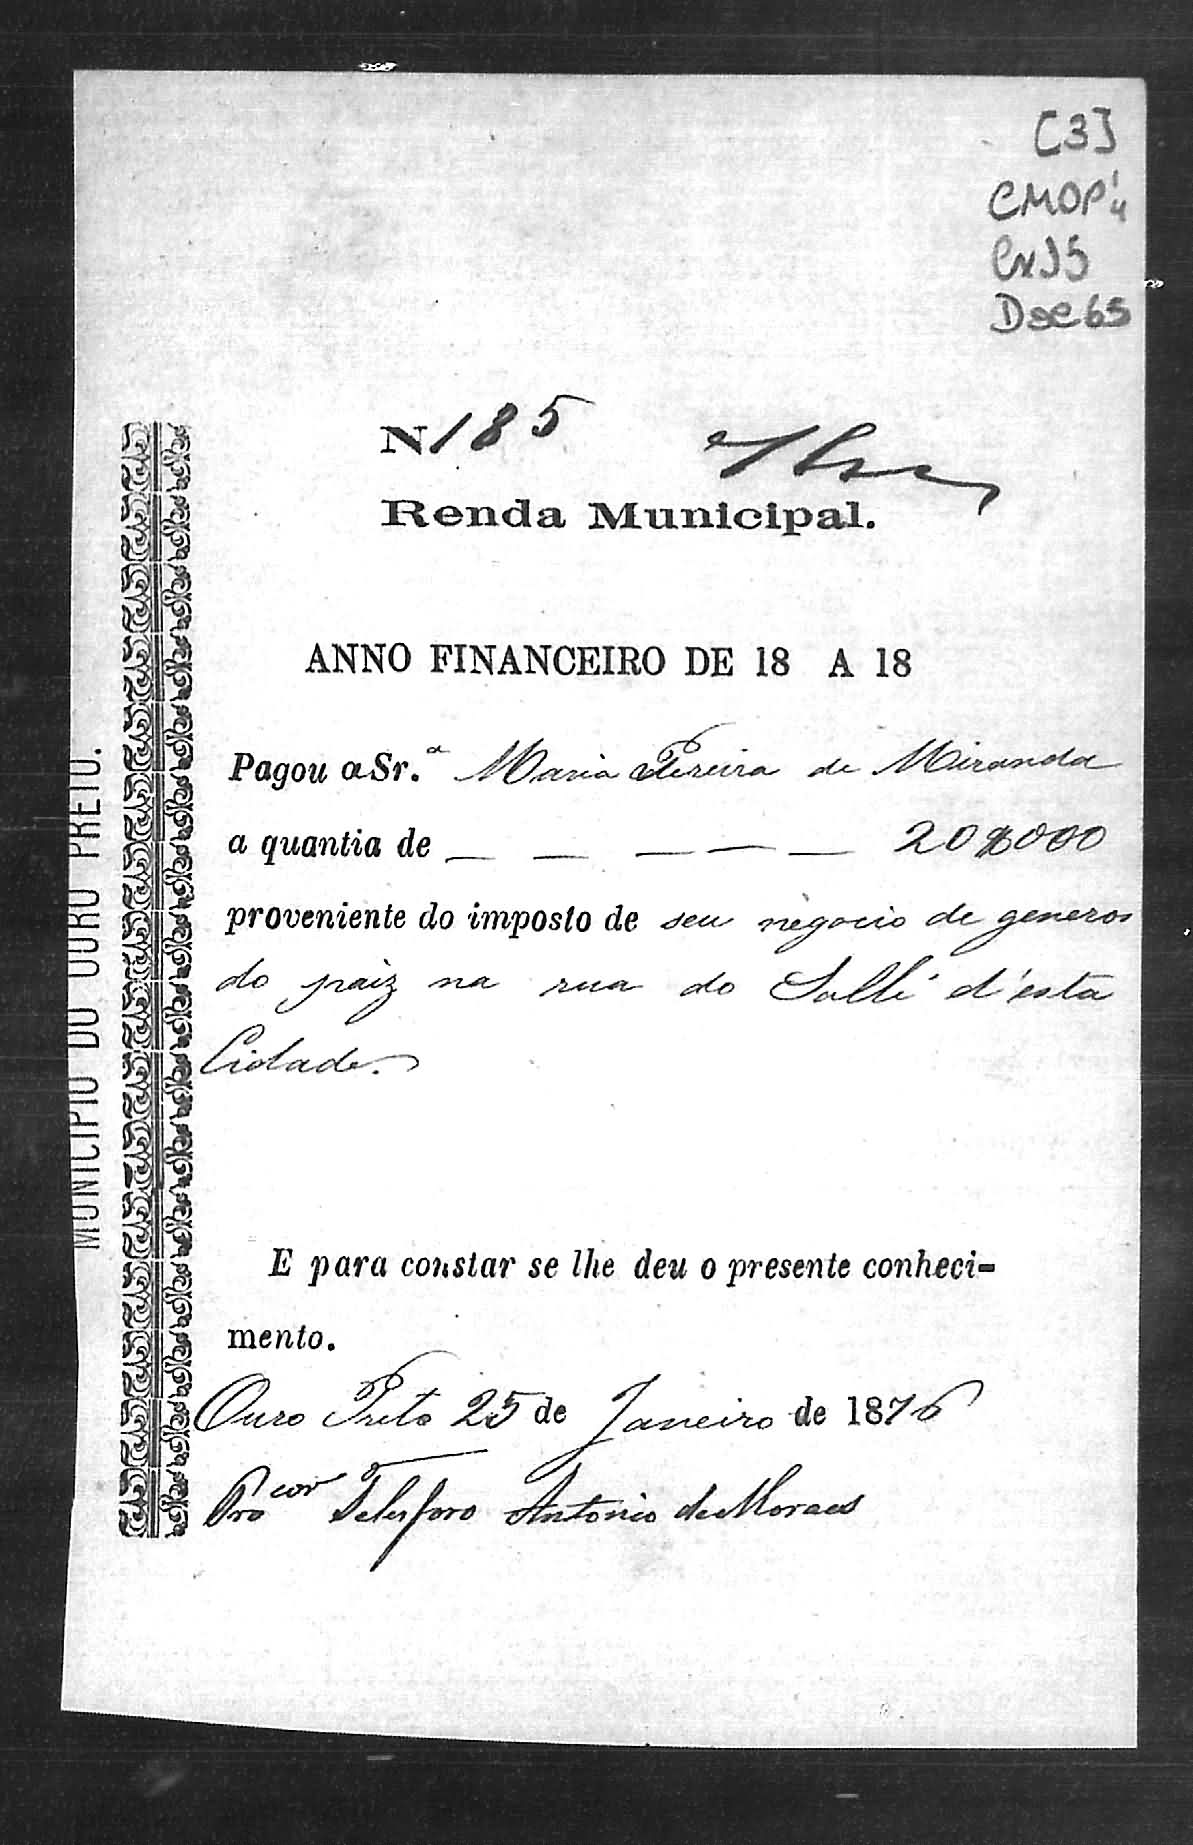 [3]
CMOP
Cx 95
Doc 65
N 185
Renda Municipal.
ANNO FINANCEIRO DE 18 A 18
Pagou a Sr.ª Maria Pereira de Miranda
a quantia de _ _ _ _ _ 20$000
proveniente do imposto de seu negocio de generos
do paiz na rua do d'esta
Cidade.
E para constar se lhe deu o presente conheci-
mento.
Ouro Preto 25 de Janeiro de 1876
Procor Telesforo Antonio de Moraes
MUNICIPIO DO OURO PRETO.